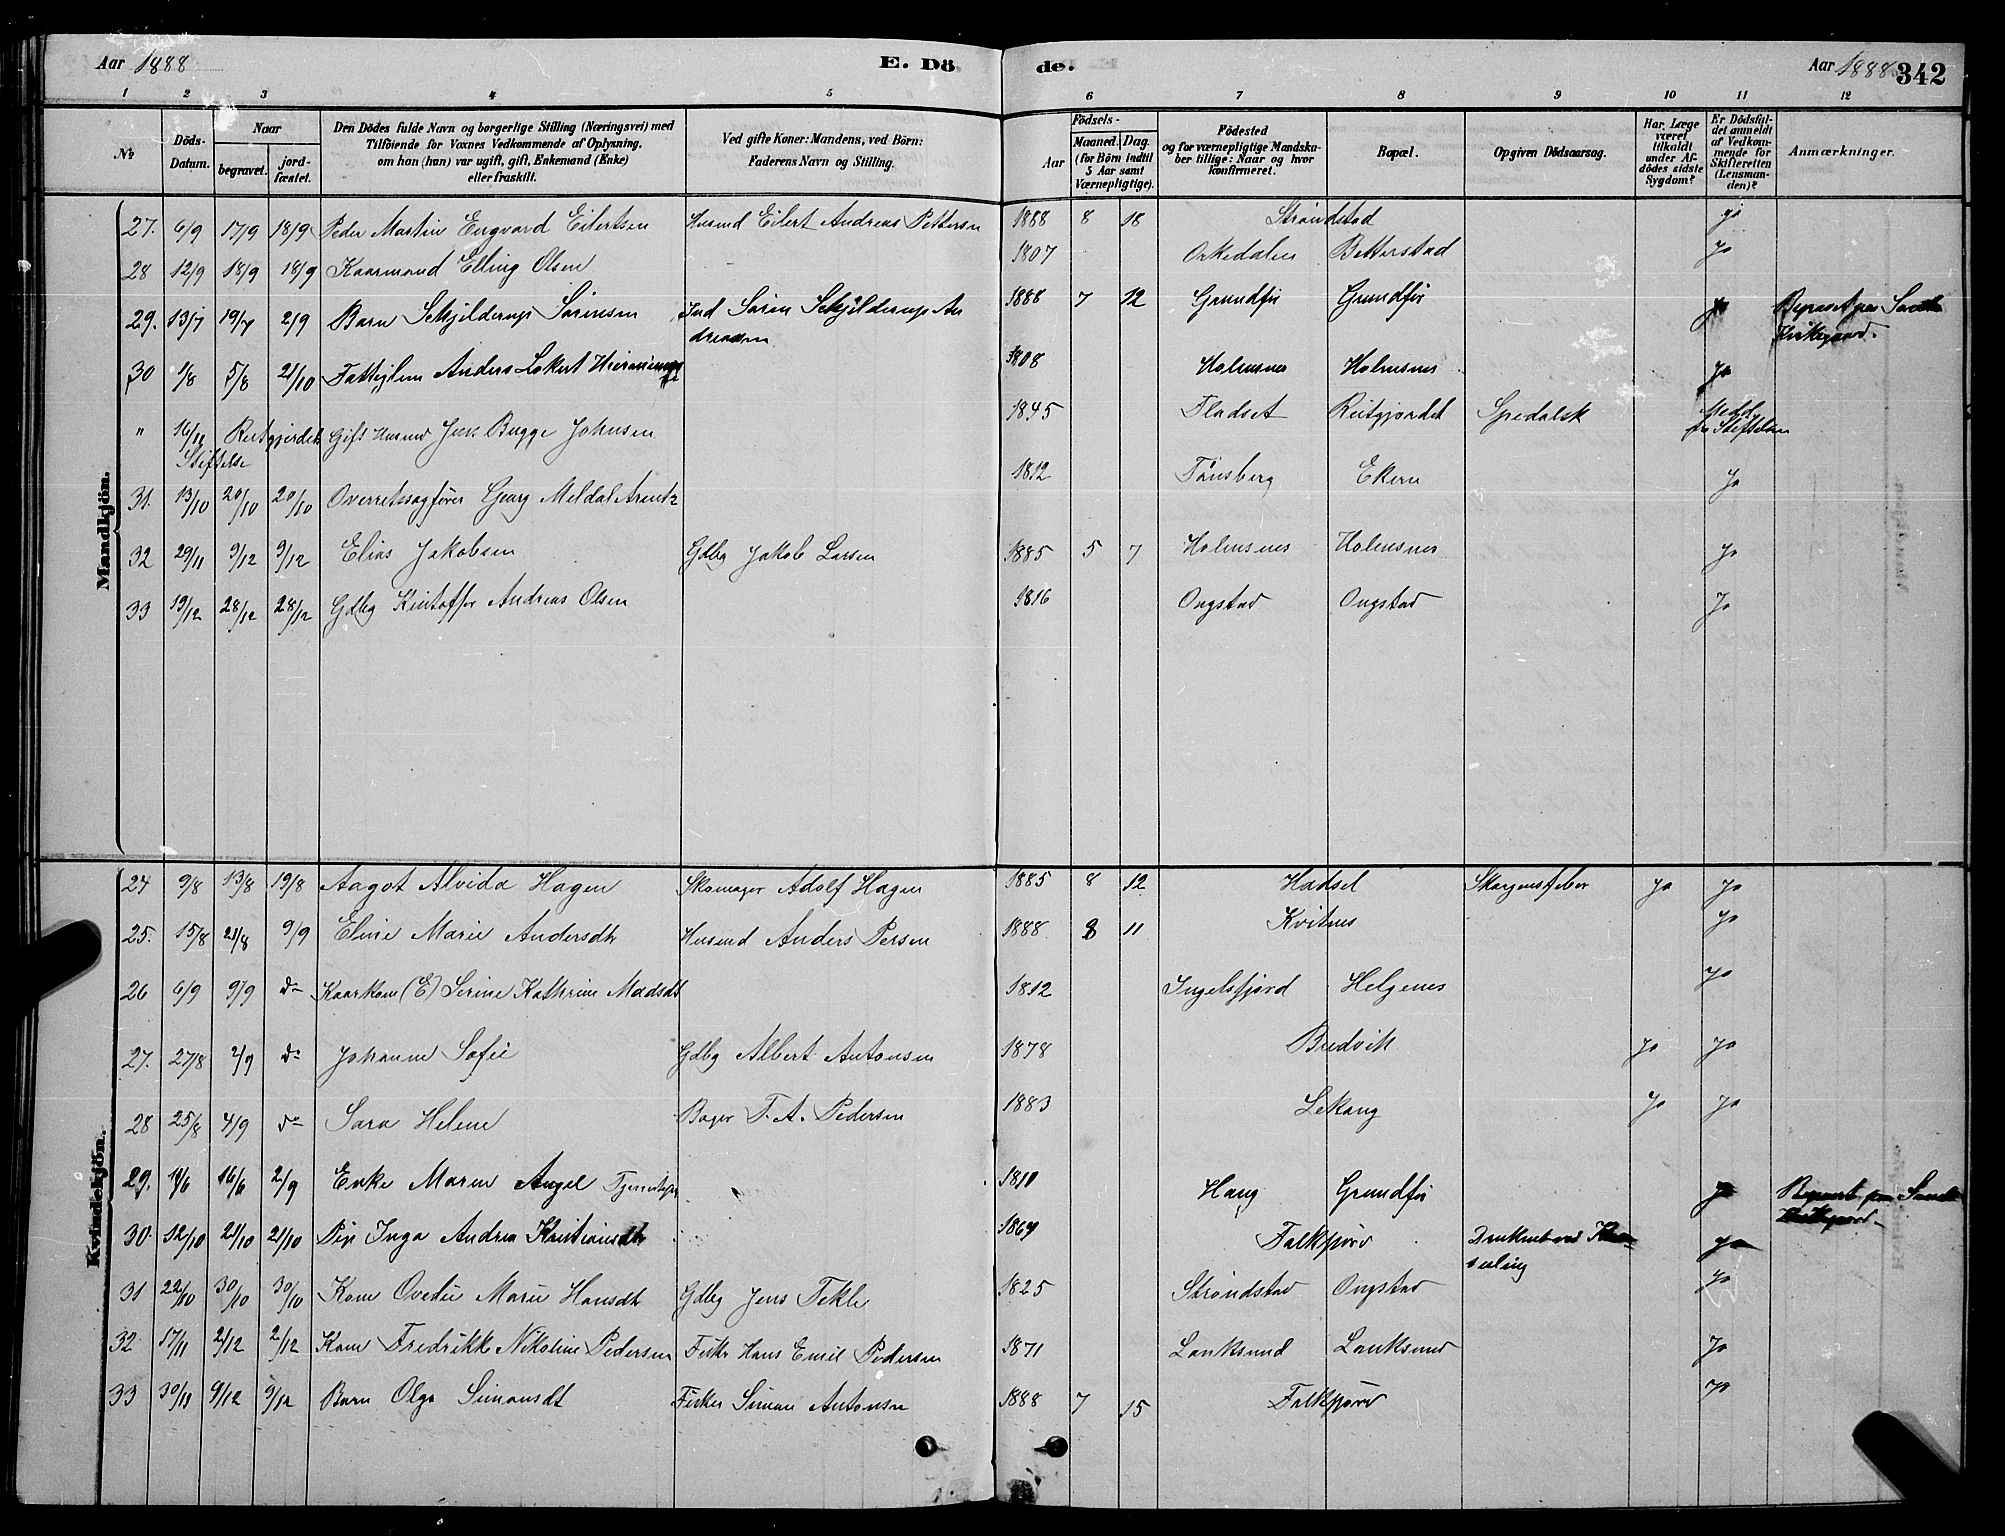 Aar 1888 E. Dö de. Aar 1888 342
1 2 3 4 5 6 7 8 9 10 11 12
No
Döds-Datum.
Naar
begravet.
jord-fæstet.
Den Dödes fulde Navn og borgerlige Stilling (Næringsvei) med
Tilföiende for Voxnes Vedkommende af Oplysning,
om hun (han) var ugift, gift, Enkemand (Enke)
eller fraskilt.
Ved gifte Koner: Mandens, ved Börn:
Faderens Navn og Stilling.
Födsels-
Aar
Maaned. Dag.
(for Börn indtil
5 Aar samt
Værnepligtige).
Födested
og for værnepligtige Mandska-
ber tillige: Naar og hvor
konfirmeret.
Bopæl.
Opgiven Dödsaarsag.
Har Læge
været
tilkaldt
under Af-
dödes sidste
Sygdom?
Er Dödsfal-
det anmeldt
af Vedkom-
mende for
Skifteretten
(Lensman-
den)?
Anmærkninger.
Mandkjön.
27. 6/9 17/9 18/9 Peder Martin Engvard Eilertsen Husmd Eilert Andreas Pettersen 1888 8 18 Strøndstad ja
28 12/9 18/9 18/9 Kaarmand Elling Olsen 1807 Orkedalen Betterstad ja
29. 13/7 19/7 2/9 Barn Schjelderup Sørensen Ind Søren Schjelderup An 1888 7 12 Grundfør Grundfør ja
dreasen Kirkegaard.
30 1/8 5/8 21/10 Anders Lokert 1808 Holmsnes Holmsnes ja
" 16/12 Reitgjerdet Gift Husmd Jens Bugge Johnsen 1845 Fladset Reitgjerdet Spedalsk Medd
Stiftelse fra Stiftelsen
31. 13/10 20/10 20/10 Overretssagfører Georg Meldal Arentz 1812 Tønsberg Ekern ja
32 29/11 9/12 9/12 Elias Jakobsen Gdbg Jakob Larsen 1885 5 7 Holmsnes Holmsnes ja
33 19/12 28/12 28/12 Gdbg Kristoffer Andreas Olsen 1816 Ongstad Ongstad ja
Kvindekjön.
24 9/8 13/8 19/8 Aagot Alvida Hagen Skomager Adolf Hagen 1885 8 12 Hadsel Skarlagensfeber ja ja
25. 15/8 21/8 9/9 Eline Marie Andersdtr Husmd Anders Persen 1888 8 11 Kvitnes ja
26 6/9 9/9 do Kaarkone (E) Serine Kathrine Madsdt 1812 Ingelsfjord Helgenes ja
27. 27/8 2/9 do Johanne Sofie Gdbg Albert Antonsen 1878 Bredvik ja ja
28 25/8 4/9 do Sara Helene Bager T. A. Pedersen 1883 Lekang ja ja
29. 16/6 2/9 Enke Maren Angel 1810 Haug Grundfør ja
30. 12/10 21/10 21/10 Pige Inga Andrea Kristiansdtr 1869 Falkfjord Druknet ved ja
seiling
31 22/10 30/10 30/10 Kone Ovedie Marie Hansdtr Gdbg Jens Tekle 1825 Strøndstad Ongstad ja
32 17/11 2/12 2/12 Kone Fredrikke Nikoline Pedersen Fisker Hans Emil Pedersen 1871 Lanksund Lanksund ja
33 30/11 9/12 9/12 Barn Olga Simonsdt Fisker Simon Antonsen 1888 7 15 Falkfjord ja